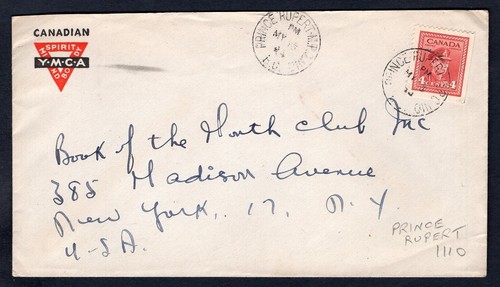 CANADIAN
SPIRIT
MIND BODY
Y·M·C·A
PRINCE RUPERT
PM
MY
B.C.
CANADA
4 CENTS 4
PRINCE RUPERT
PM
Book of the Month Club Inc
385 Madison Avenue
New York, 17, N. Y.
U-SA.
PRINCE
RUPERT
1110